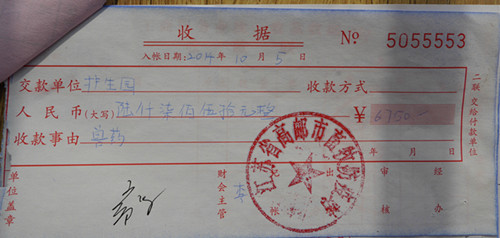 收据 № 5055553
入帐日期:2014年10月5日
交款单位 护生园 收款方式
人民币(大写) 陆仟柒佰伍拾元整 ¥ 6750
收款事由 兽药
年 月 日
单位盖章 财会主管 出 审核 经办
二联交给付款单位
江苏省高邮市畜牧